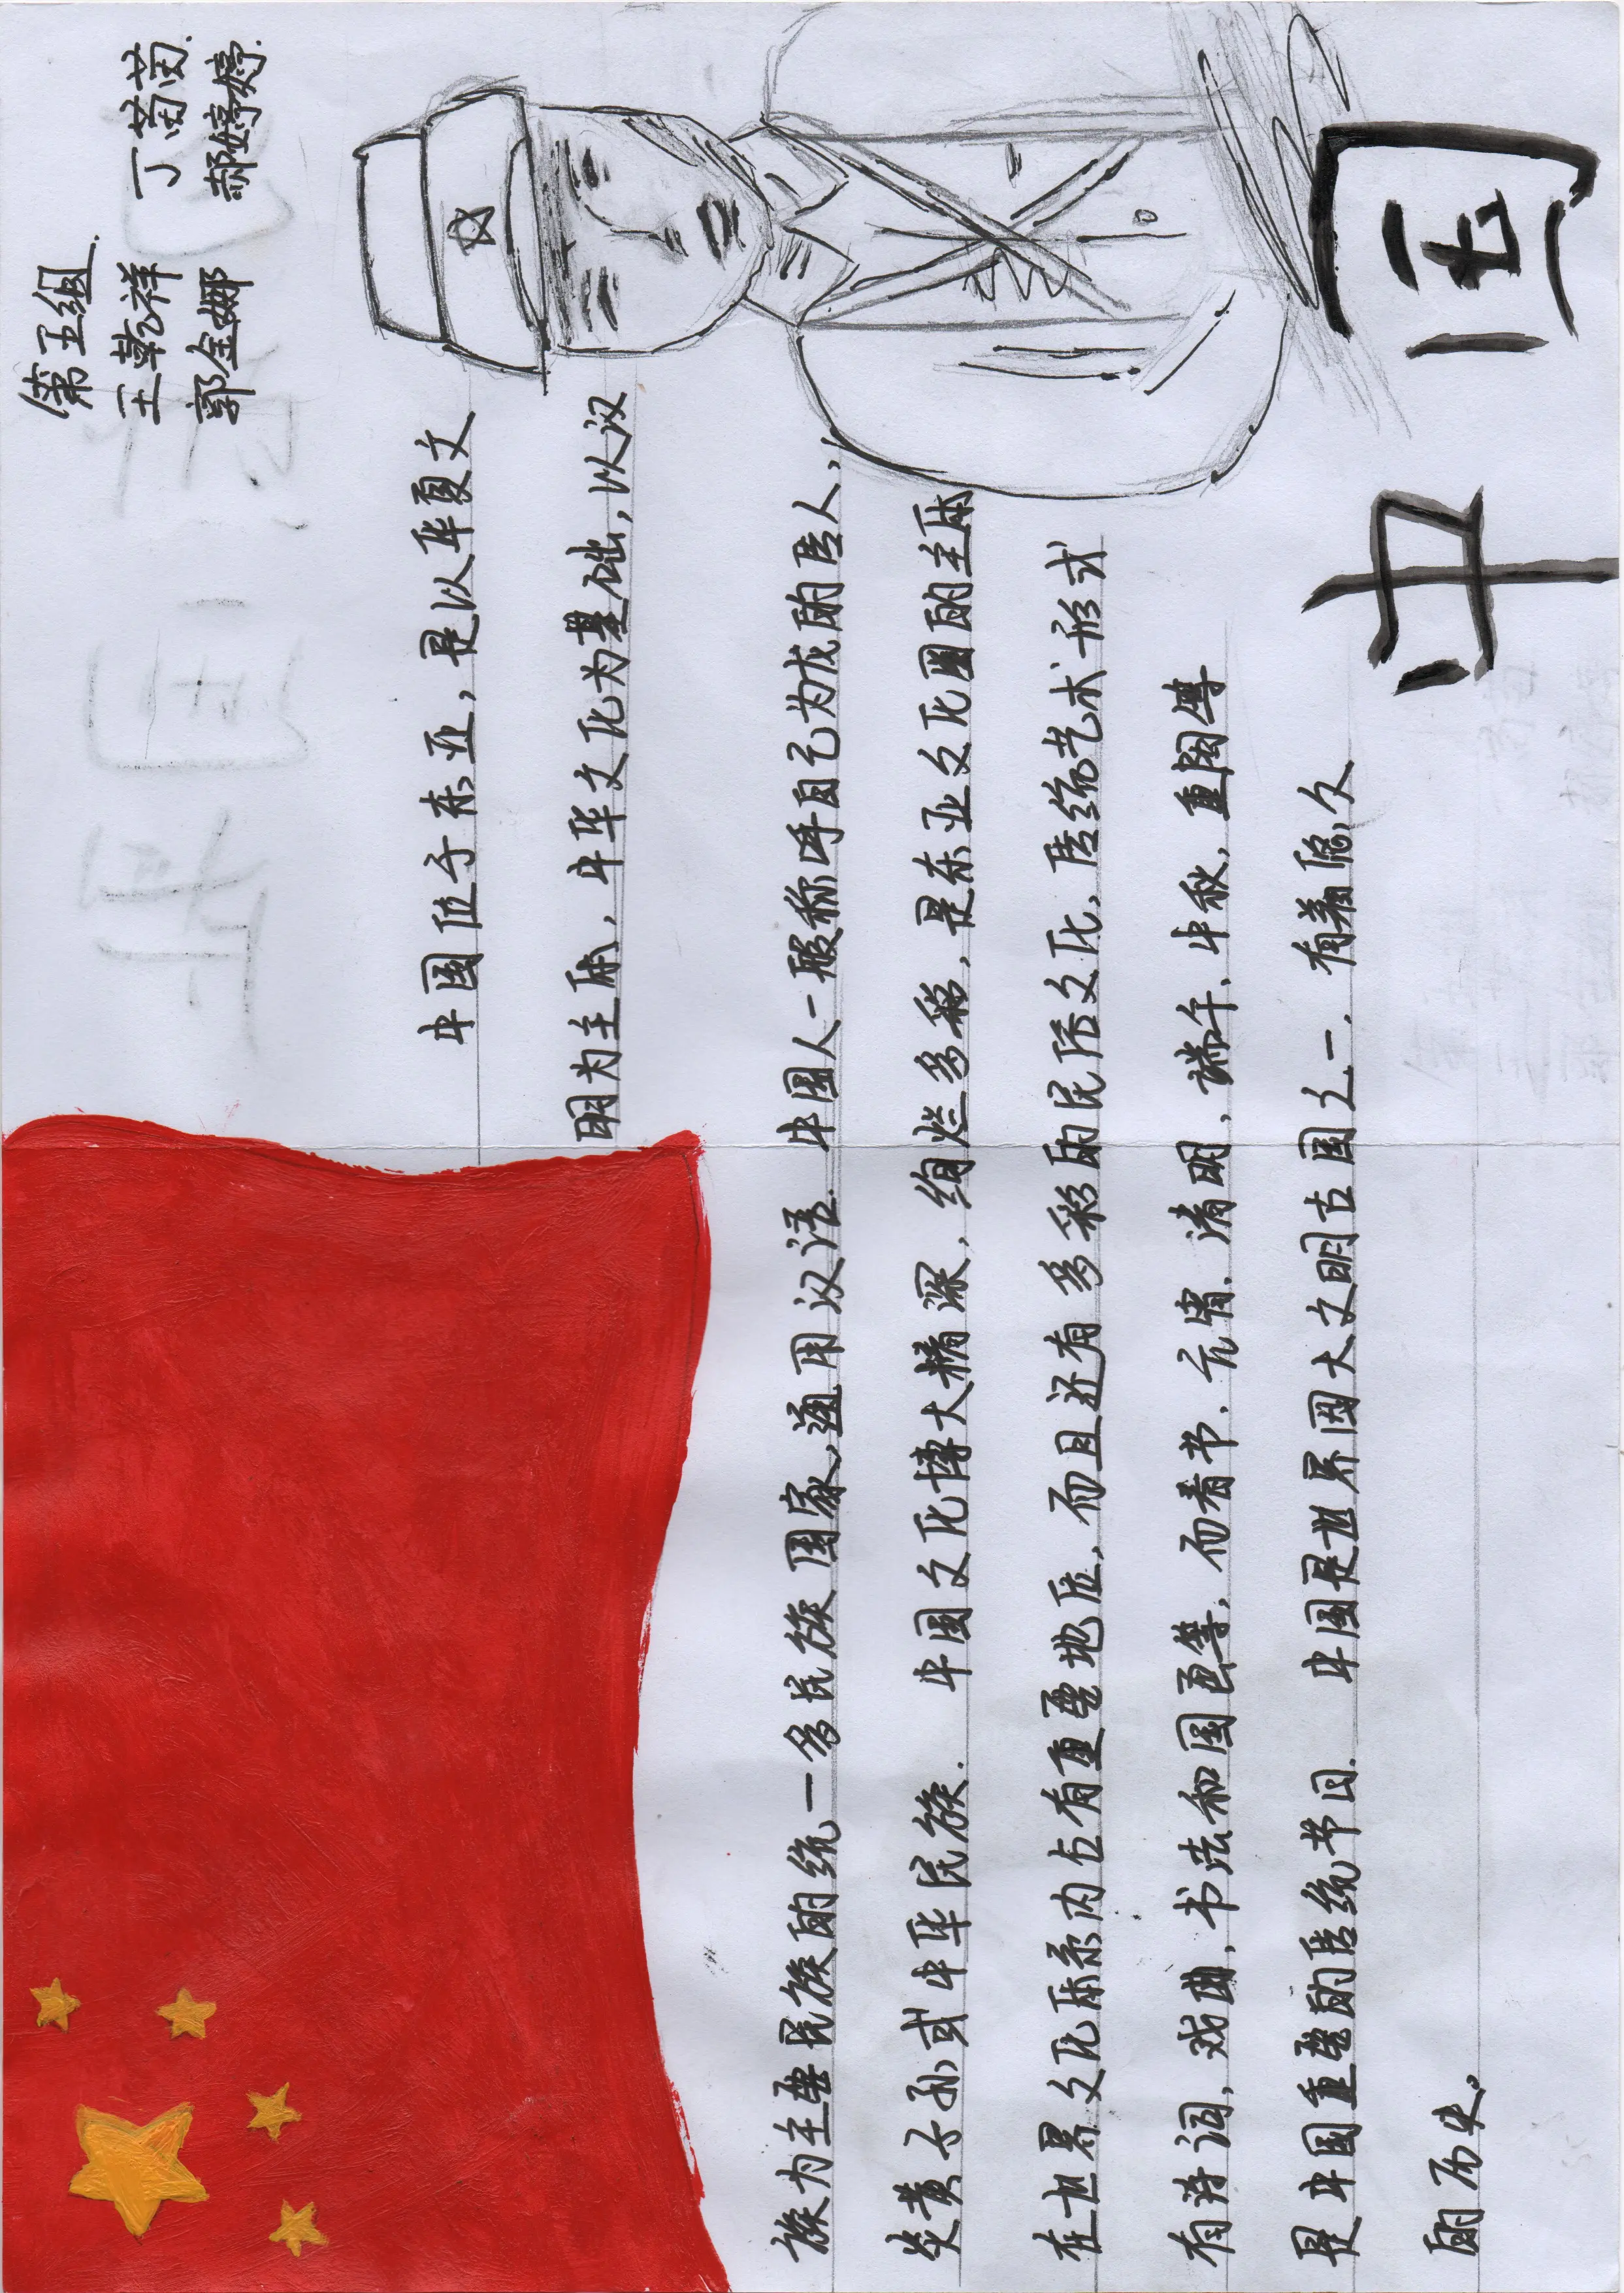 第五组
王乾祥 丁茵茵.
郭金娜 郝婷婷.
中国位于东亚，是以华夏文
明为主体，中华文化为基础，以汉
族为主要民族的统一多民族国家，通用汉语.中国人一般称呼自己为龙的传人，
炎黄子孙或中华民族. 中国文化博大精深，绚烂多彩，是东亚文化圈的主体
在世界文化体系内占有重要地位，而且还有多彩的民俗文化，传统艺术形式
有诗词，戏曲，书法和国画等，而春节，元宵，清明，端午，中秋，重阳等
是中国重要的传统节日. 中国是世界四大文明古国之一.有着悠久
的历史。
中国